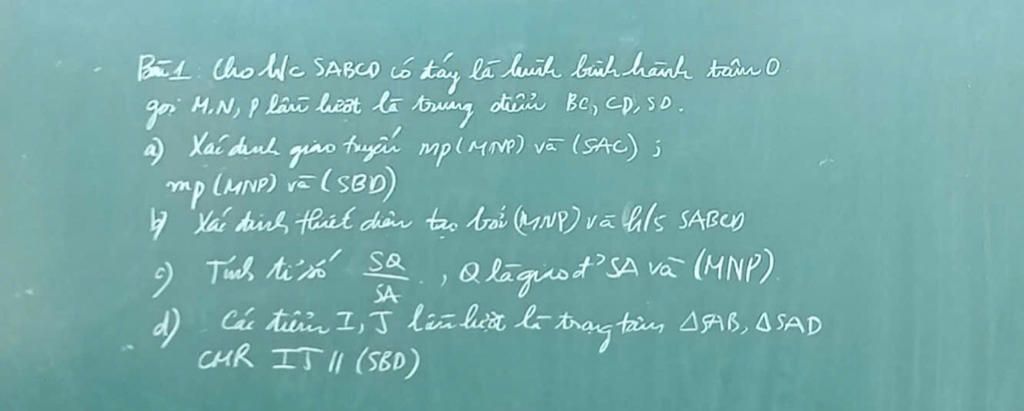 Bài 1: Cho h/c SABCD có đáy là hình bình hành tâm O
gọi M, N, P lần lượt là trung điểm BC, CD, SD.
a) Xác định giao tuyến mp(MNP) và (SAC) ;
mp (MNP) và (SBD)
b) Xác định thiết diện tạo bởi (MNP) và h/c SABCD
c) Tính tỉ số SQ/SA , Q là giao đ' SA và (MNP)
d) Các điểm I, J lần lượt là trọng tâm ΔSAB, ΔSAD
CMR IJ // (SBD)